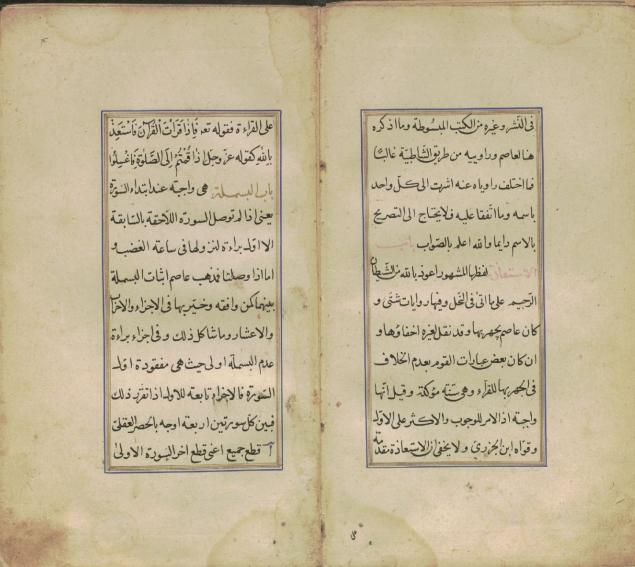 فى النشر وغيره من الكتب المبسوطة وما اذكره
هنا لعاصم وراوييه من طريق الشاطبية غالبًا
فما اختلف راوياه عنه اشرت الى كل واحد
باسمه وما اتفقا عليه فلا يحتاج الى التصريح
بالاسم دايما والله اعلم بالصواب باب
الاستعاذة لفظها المشهور اعوذ بالله من الشيطان
الرّجيم على ما اتى فى النحل وفيها روايات شتى و
كان عاصم يجهر بها وقد نقل لغيره اخفاؤها و
ان كان بعض عبارات القوم بعدم الخلاف
فى الجهر بها للقرآء وهى سنّة مؤكّدة وقيل انّها
واجبة اذ الامر للوجوب والاكثر على الاول
وقوّاه ابن الجزرى ولا يخفى ان الاستعاذة مقدّمة
على القراءة فقوله تعـ فَاِذا قَرَأتَ الْقُرآنَ فَاسْتَعِذْ
بِاللهِ كقوله عزّ وجل اذا قُمْتُمْ اِلَى الصَّلوةِ فَاغْسِلُوا
باب البسملة هى واجبة عند ابتداء السّورة
يعنى اذا لم توصل السورة اللاحقة بالسابقة
الا اول براءة لنزولها فى ساعة الغضب و
اما اذا وصلنا فمذهب عاصم اثبات البسملة
بينهما كمن وافقه وخيّر بها فى الاجزاء والاحزاب
والاعشار وما شاكل ذلك وفى اجزاء براءة
عدم البسملة اولى حيث هى مفقودة اول
السّورة فالاجزاء تابعة للاول اذا تقرّر ذلك
فبين كل سورتين اربعة اوجه بالحصر العقلىّ
آ قطع جميع اعنى قطع اخر السورة الاولى